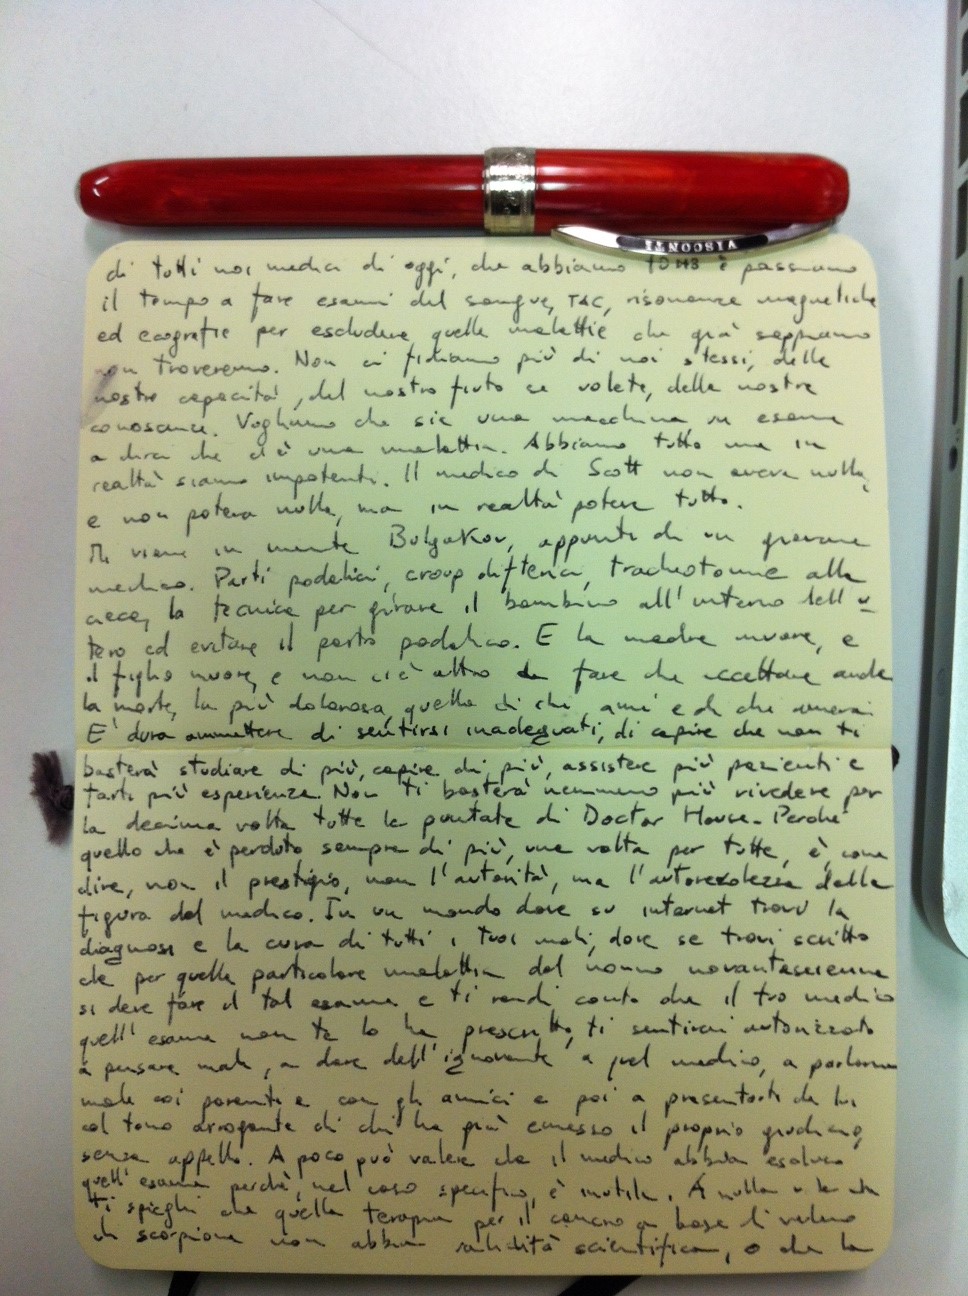 VISCONTI
di tutti noi medici di oggi, che abbiamo tutto e passiamo
il tempo a fare esami del sangue, TAC, risonanze magnetiche
ed ecografie per escludere quelle malattie che già sappiamo
non troveremo. Non ci fidiamo più di noi stessi, delle
nostre capacità, del nostro fiuto se volete, delle nostre
conoscenze. Vogliamo che sia una macchina un esame
a dirci che c'è una malattia. Abbiamo tutto ma in
realtà siamo impotenti. Il medico di Scott non aveva nulla,
e non poteva nulla, ma in realtà poteva tutto.
Mi viene in mente Bulgakov, appunti di un giovane
medico. Parti podalici, croup difterici, tracheotomie alla
cieca, la tecnica per girare il bambino all'interno dell'u-
tero ed evitare il parto podalico. E la madre muore, e
il figlio muore, e non c'è altro da fare che accettare anche
la morte, la più dolorosa, quella di chi ami e di chi amerai.
E' dura ammettere di sentirsi inadeguati, di capire che non ti
basterà studiare di più, capire di più, assistere più pazienti e
farti più esperienza. Non ti basterà nemmeno più rivedere per
la decima volta tutte le puntate di Doctor House. Perché
quello che è perduto sempre di più, una volta per tutte, è, come
dire, non il prestigio, non l'autorità, ma l'autorevolezza della
figura del medico. In un mondo dove su internet trovi la
diagnosi e la cura di tutti i tuoi mali, dove se trovi scritto
che per quella particolare malattia del nonno novantaseienne
si deve fare il tal esame e ti rendi conto che il tuo medico
quell'esame non te lo ha prescritto, ti sentirai autorizzato
a pensare male, a dare dell'ignorante a quel medico, a parlarne
male coi parenti e con gli amici e poi a presentarti da lui
col tono arrogante di chi ha già emesso il proprio giudizio,
senza appello. A poco può valere che il medico abbia escluso
quell'esame perché, nel caso specifico, è inutile. A nulla vale che
ti spieghi che quella terapia per il cancro a base di veleno
di scorpione non abbia validità scientifica, o che la